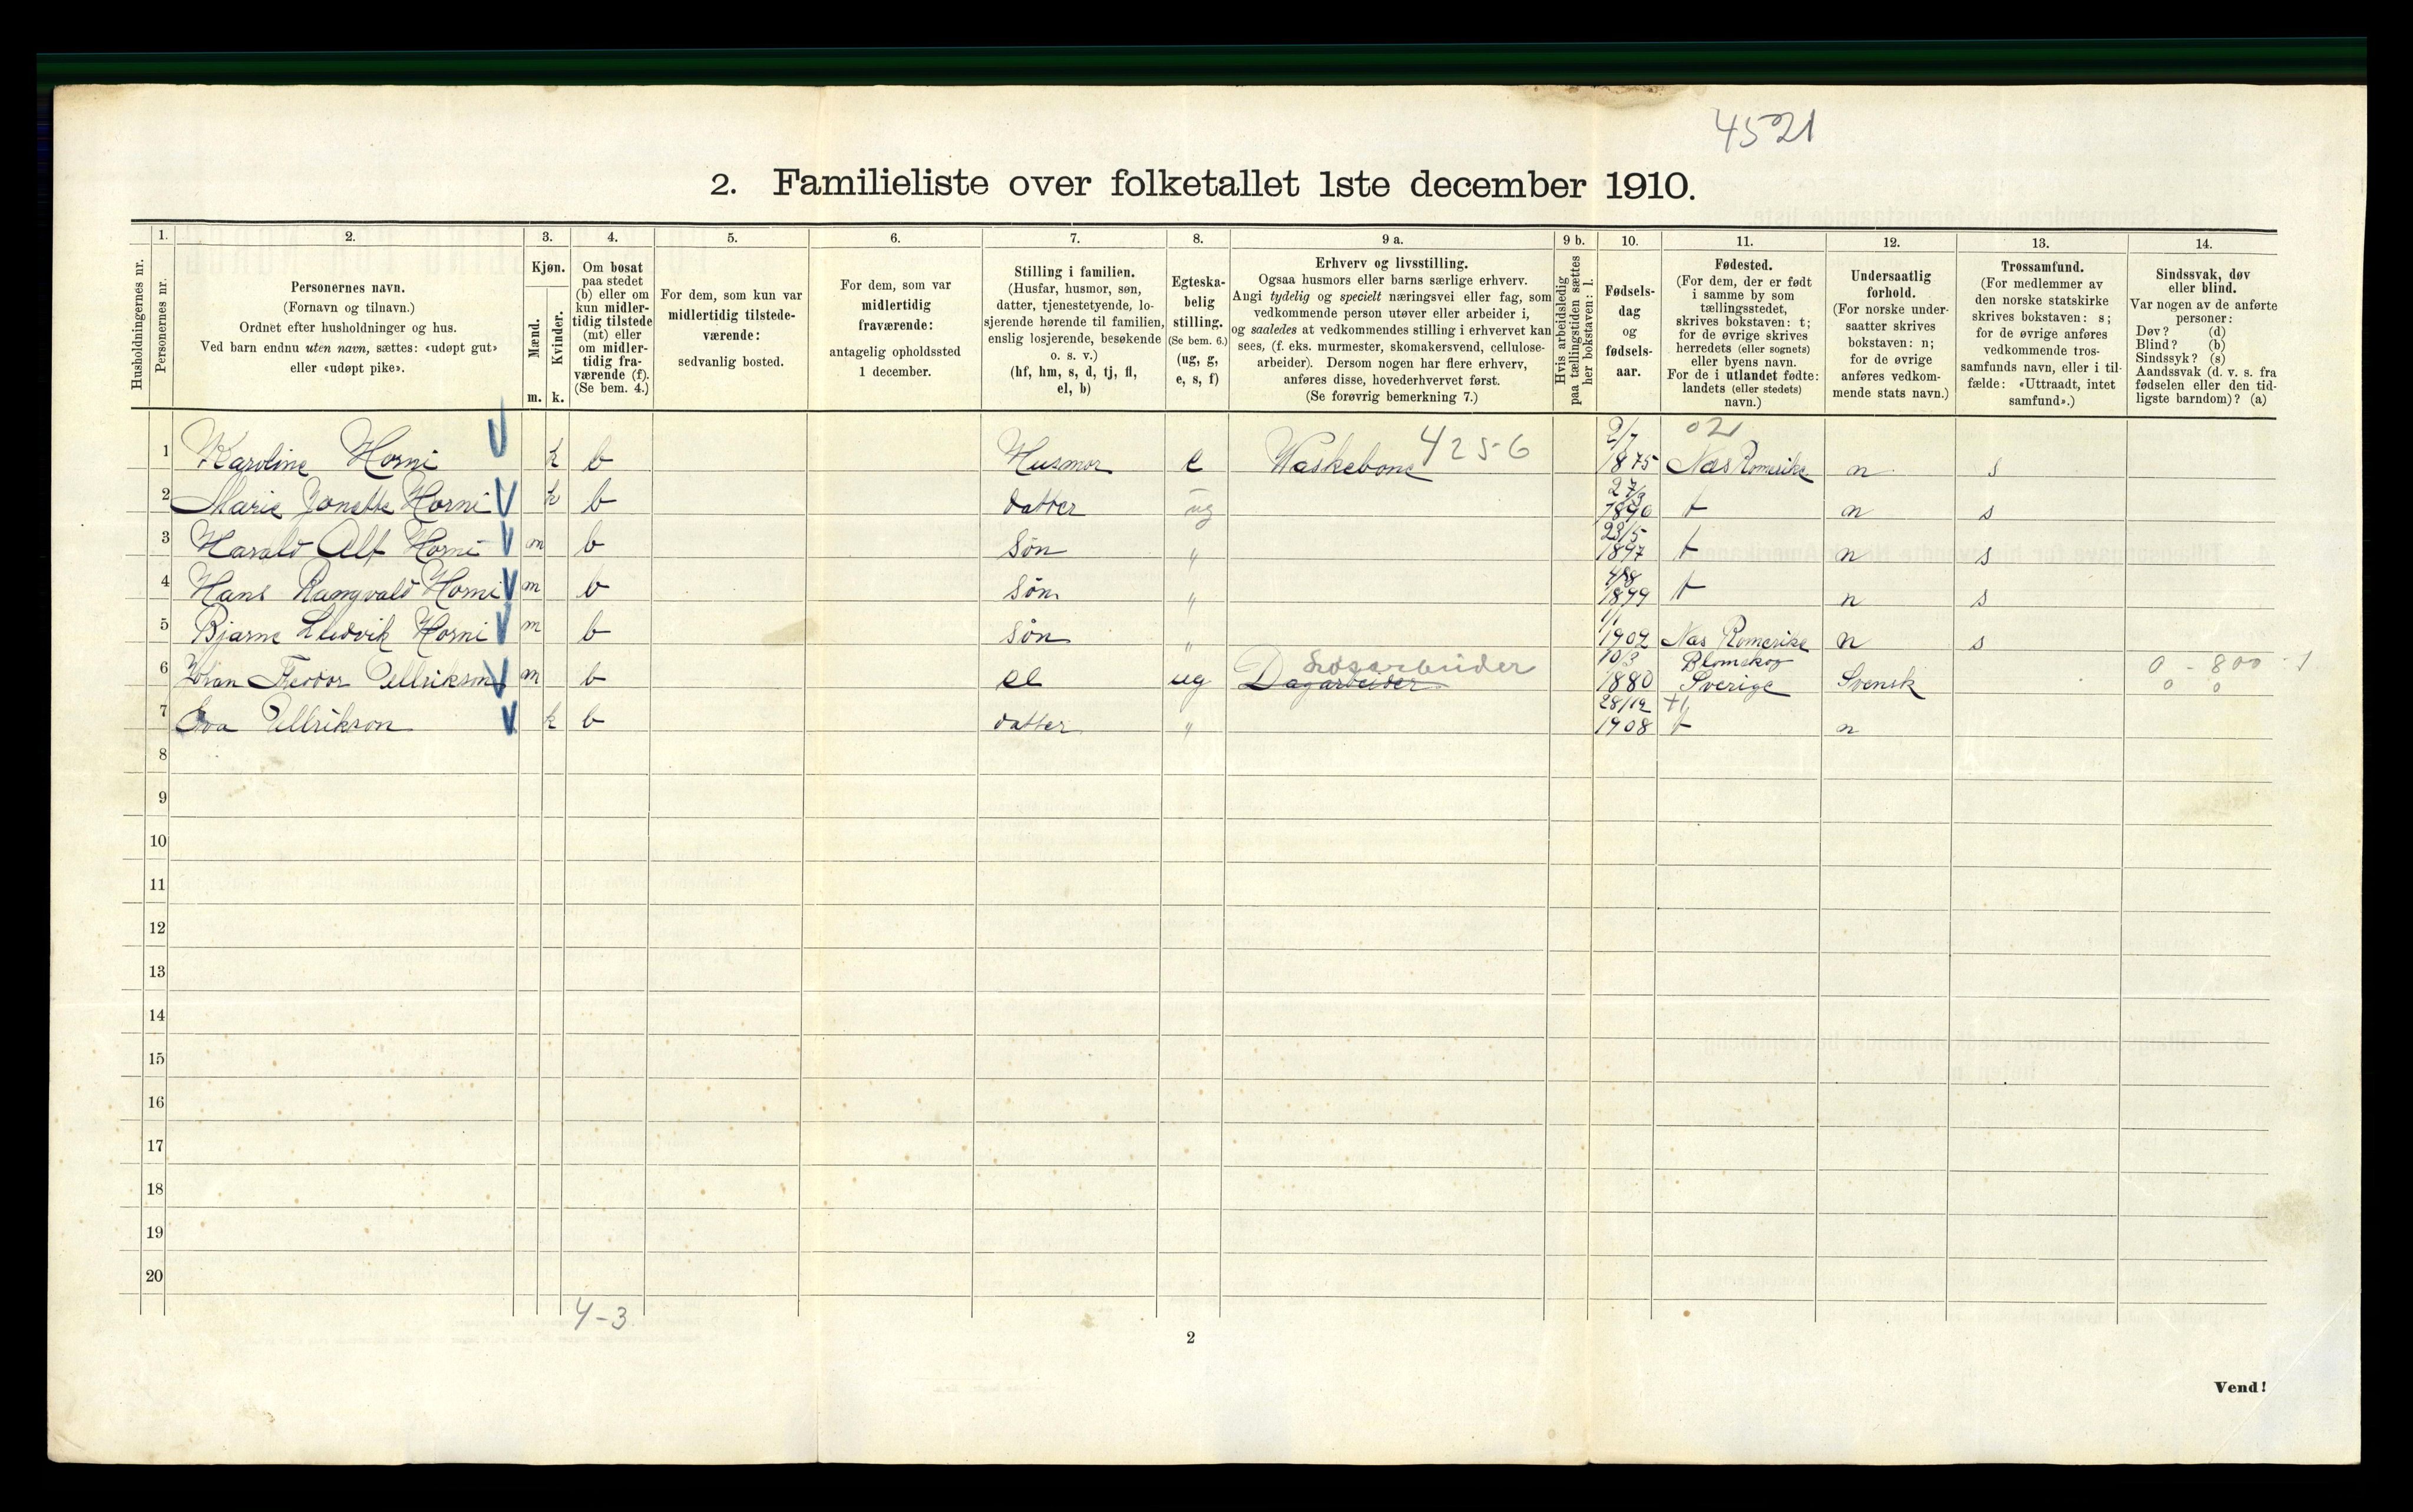 4521
2. Familieliste over folketallet 1ste december 1910.
Husholdningernes nr.
1. Personernes nr.
2. Personernes navn.
(Fornavn og tilnavn.)
Ordnet efter husholdninger og hus.
Ved barn endnu uten navn, sættes: «udøpt gut»
eller «udøpt pike».
3. Kjøn.
Mænd. Kvinder.
m. k.
4. Om bosat
paa stedet
(b) eller om
kun midler-
tidig tilstede
(mt) eller
om midler-
tidig fra-
værende (f).
(Se bem. 4.)
5. For dem, som kun var
midlertidig tilstede-
værende:
sedvanlig bosted.
6. For dem, som var
midlertidig
fraværende:
antagelig opholdssted
1 december.
7. Stilling i familien.
(Husfar, husmor, søn,
datter, tjenestetyende, lo-
sjerende hørende til familien,
enslig losjerende, besøkende
o. s. v.)
(hf, hm, s, d, tj, fl,
el, b)
8. Egteska-
belig
stilling.
(Se bem. 6.)
(ug, g,
e, s, f)
9 a. Erhverv og livsstilling.
Ogsaa husmors eller barns særlige erhverv.
Angi tydelig og specielt næringsvei eller fag, som
vedkommende person utøver eller arbeider i,
og saaledes at vedkommendes stilling i erhvervet kan
sees, (f. eks. murmester, skomakersvend, cellulose-
arbeider). Dersom nogen har flere erhverv,
anføres disse, hovederhvervet først.
(Se forøvrig bemerkning 7.)
9 b. Hvis arbeidsledig
paa tællingstiden sættes
her bokstaven: l.
10. Fødsels-
dag
og
fødsels-
aar.
11. Fødested.
(For dem, der er født
i samme by som
tællingsstedet,
skrives bokstaven: t;
for de øvrige skrives
herredets (eller sognets)
eller byens navn.
For de i utlandet fødte:
landets (eller stedets)
navn.)
12. Undersaatlig
forhold.
(For norske under-
saatter skrives
bokstaven: n;
for de øvrige
anføres vedkom-
mende stats navn.)
13. Trossamfund.
(For medlemmer av
den norske statskirke
skrives bokstaven: s;
for de øvrige anføres
vedkommende tros-
samfunds navn, eller i til-
fælde: «Uttraadt, intet
samfund».)
14. Sindssvak, døv
eller blind.
Var nogen av de anførte
personer:
Døv? (d)
Blind? (b)
Sindssyk? (s)
Aandssvak (d. v. s. fra
fødselen eller den tid-
ligste barndom)? (a)
1 Karoline Horni k b Husmor e Waskekone 4256 2/7 1875 02 Næs Romerike n s
2 Marie Jonette Horni k b datter ug 27/3 1890 t n s
3 Harald Alf Horni m b Søn " 23/5 1897 t n s
4 Hans Rangvald Horni m b Søn " 1899 t n s
5 Bjarne Ludvik Horni m b Søn " 1/1 1902 Næs Romerike n s
6 Johan Theodor Ullrikson m b el ug Dagarbeider Løsarbeider 10/3 1880 Blomskog Sverige Svensk 0 - 800 - 1
0 0
7 Eva Ullrikson k b datter " 28/12 1908 t n
8
9
10
11
12
13
14
15
16
17
18
19
20
4-3
2
Vend!